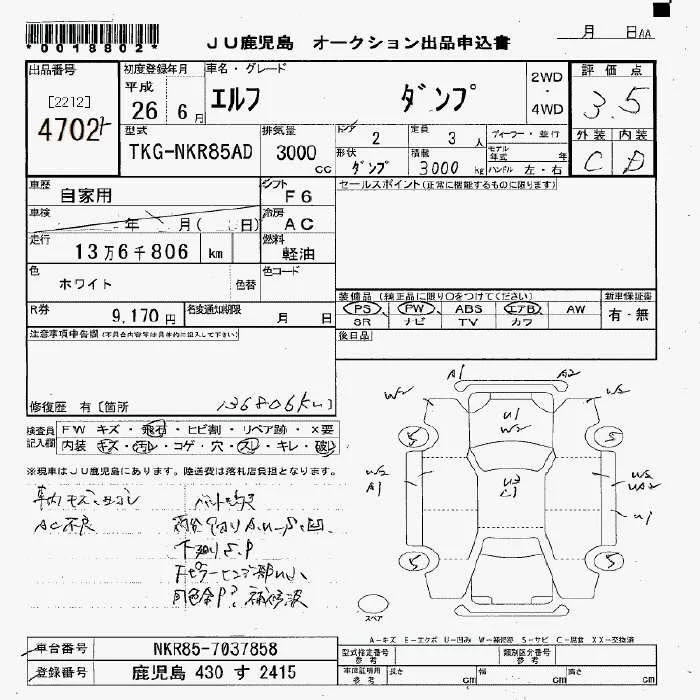 *0018802*
JU鹿児島 オークション出品申込書
月 日AA
出品番号
[2212]
4702
初度登録年月
平成
26 6月
車名・グレード
エルフ ダンプ
2WD
・
4WD
評価点
3.5
外装 内装
C D
型式
TKG-NKR85AD
排気量
3000
cc
ドア 2
定員 3人
ディーラー・並行
モデル年式 年
形状 ダンプ
積載 3000 kg
ハンドル 左・右
車歴 自家用
シフト F6
セールスポイント(正常に機能するものに限ります)
車検 年 月( 日)
冷房 AC
走行 13万6千806 km
燃料 軽油
色 ホワイト 色替
色コード
装備品(純正品に限り○をつけてください)
新車保証書
有・無
PS PW ABS エアB AW
SR ナビ TV カワ
R券 9,170円
名変通知期限 月 日
注意事項申告欄(不具合内容等は具体的に記入して下さい)
後日品
修復歴 有〔箇所 136806km〕
検査員記入欄
FW キズ・飛石・ヒビ割・リペア跡・×要
内装 キズ・汚レ・コゲ・穴・スレ・キレ・破レ
※現車はJU鹿児島にあります。陸送費は落札店負担となります。
AC不良
下廻りS.P
A1 A2
W2 W2
U1
W2
5 5
U3
C1
W2
A1
W2
UA2
U1
5 5
スペア
A-キズ E-エクボ U-凹み W-補修跡 S-サビ C-腐食 XX-交換済
車台番号 NKR85-7037858
登録番号 鹿児島 430 す 2415
型式指定番号
参考
類別区分番号
参考
車庫証明用
参考
長さ cm
幅 cm
高さ cm